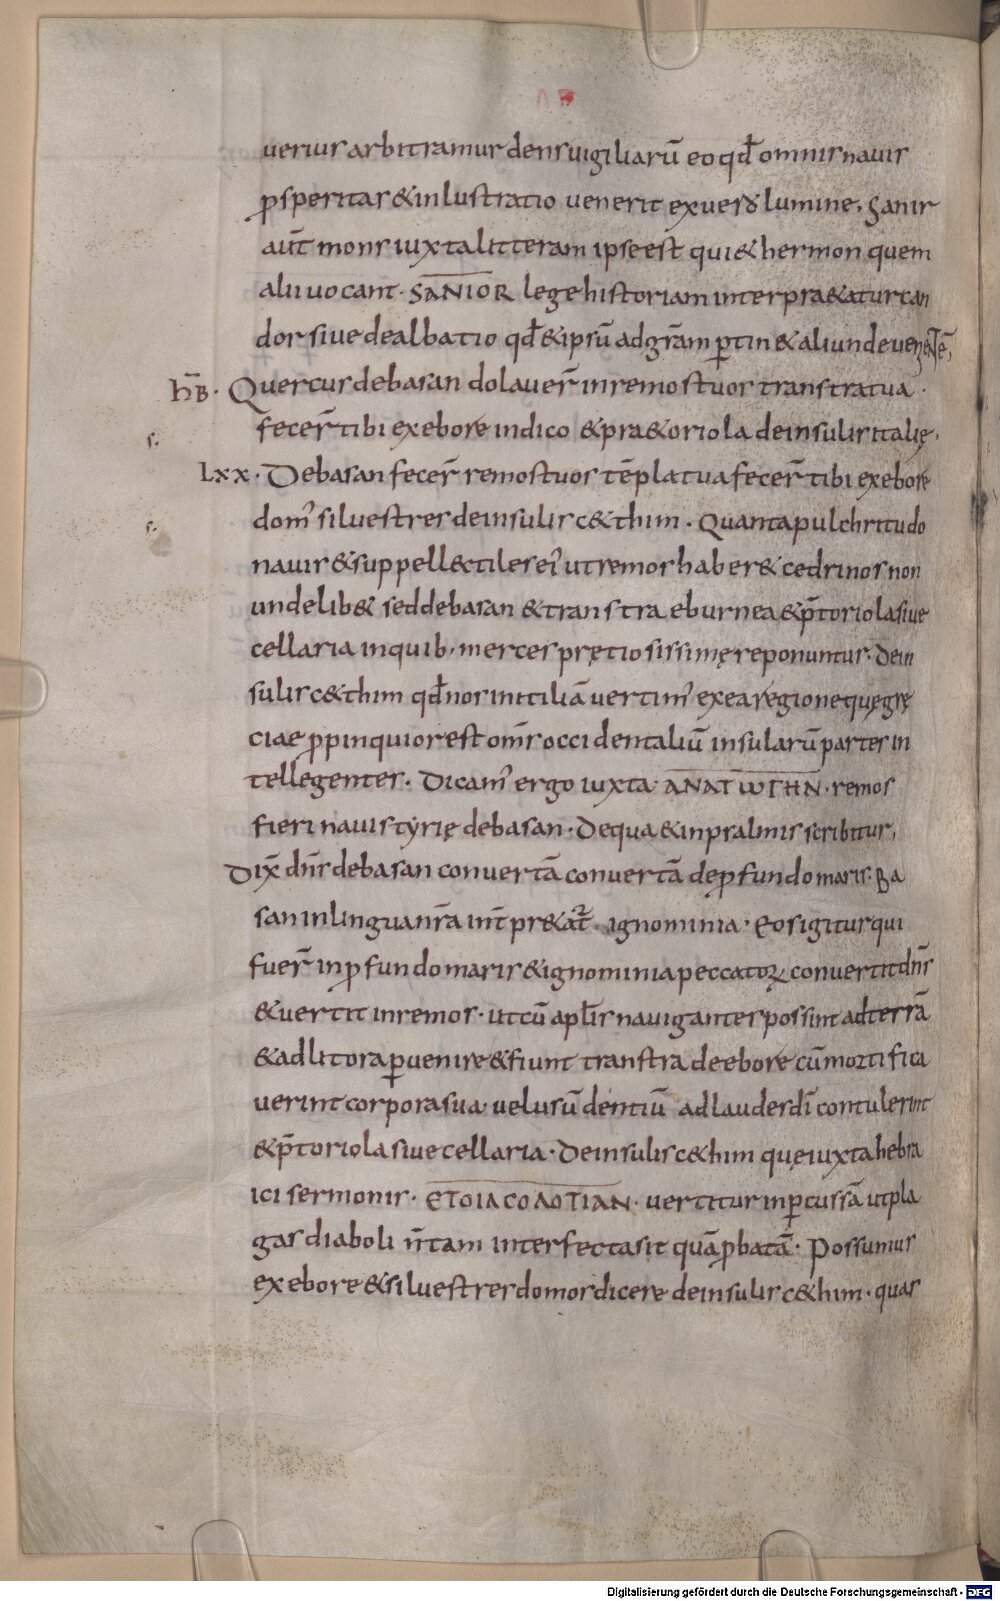 verius arbitramur dens vigiliarū eo qđ omnis navis
ꝓsperitas & inlustratio venerit ex vero lumine. Sanir
aūt mons iuxta litteram ipse est qui & hermon quem
alii vocant. SANIOR lege historiam interpra&atur can
dor sive dealbatio qđ & ipsū ad gr̄am ꝑtin& aliunde venientē,
hB̄. Quercus de basan dolaver̄ in remos tuos transtra tua.
fecer̄ tibi ex ebore indico & pra&oriola de insulis italię.
s.
Lxx. De basan fecer̄ remos tuos tēpla tua fecer̄ tibi ex ebore
dom' silvestres de insulis c&thim. Quanta pulchritudo
s.
navis & suppellectiles ei' ut remos haber& cedrinos non
undelib& sed de basan & transtra eburnea & p̄toriola sive
cellaria in quib; merces pretiosissimę reponuntur. De in
sulis c&thim qđ nos in itiliā vertim' ex ea regione quę grę
ciae ꝓpinquior est om̄s occidentaliū insularū partes in
tellegentes. Dicam' ergo iuxta ANATWΓHN. remos
fieri navis tyrię de basan. De qua & in psalmis scribitur,
Dix̄ dn̄s de basan convertā convertā de ꝓfundo maris. Ba
san in lingua nr̄a int̄pr&at̄ ignominia. Eos igitur qui
fuer̄ in ꝓfundo maris & ignominia peccatoꝝ convertit dn̄s
& vertit in remos. ut cū apl̄is navigantes possint ad terrā
& ad litora ꝑvenire & fiunt transtra de ebore cū mortifica
verint corpora sua vel usū dentiū ad laudes dī contulerint
& p̄toriola sive cellaria. De insulis c&him quę iuxta hebra
ici sermonis. ETOIACOΛOTIAN. vertitur in ꝑcussā ut pla
gas diaboli n̄ tam interfecta sit quā ꝓbatā. Possumus
ex ebore & silvestres domos dicere de insulis c&him. quas
Digitalisierung gefördert durch die Deutsche Forschungsgemeinschaft - DFG